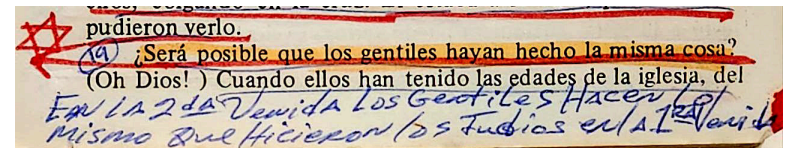 pudieron verlo.
19 ¿Será posible que los gentiles hayan hecho la misma cosa?
(Oh Dios! ) Cuando ellos han tenido las edades de la iglesia, del
EN LA 2da Venida Los Gentiles Hacen Lo
Mismo Que Hicieron los Judios en la 1RA Venida